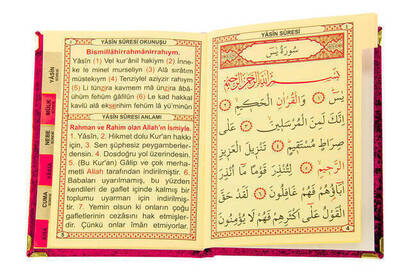 YÂSÎN SÛRESİ OKUNUŞU
Bismillâhirrahmânirrahıym.
Yâsîn (1) Vel kur'ânil hakiym (2) İnne-
ke le minel murseliyn (3) Alâ sırâtım
müstekıym (4) Tenziylel aziyzir rahıym
(5) Li tünzira kavmem mâ ünzira âbâ-
ühüm fehüm gâfilûn (6) Le kad hakkal
kavlü alâ ekserihim fehüm lâ yü'minûn
YÂSÎN SÛRESİ ANLAMI
Rahman ve Rahim olan Allah'ın İsmiyle.
1. Yâsîn, 2. Hikmet dolu Kur'an hakkı
için, 3. Sen şüphesiz peygamberler-
densin. 4. Dosdoğru yol üzerindesin.
5. (Bu Kur'an) Gâlip ve çok merha-
metli Allah tarafından indirilmiştir. 6.
Babaları uyarılmamış, bu yüzden
kendileri de gaflet içinde kalmış bir
toplumu uyarman için indirilmiş-
tir. 7. Yemin olsun ki onların çoğu
gafletlerinin cezâsını hak etmişler-
dir. Çünkü onlar îman etmiyorlar.
YÂSÎN
SÛRESİ
MÜLK
NEBE
CUMA
YÂSÎN SÛRESİ
سُورَةُ يٰسٓ
بِسْمِ اللّٰهِ الرَّحْمٰنِ الرَّحِيمِ
يٰسٓ ﴿١﴾ وَالْقُرْاٰنِ الْحَكِيمِ ﴿٢﴾
اِنَّكَ لَمِنَ الْمُرْسَلِينَ ﴿٣﴾ عَلٰى
صِرَاطٍ مُسْتَقِيمٍ ﴿٤﴾ تَنْزِيلَ الْعَزِيزِ
الرَّحِيمِ ﴿٥﴾ لِتُنْذِرَ قَوْمًا مَٓا اُنْذِرَ
اٰبَٓاؤُهُمْ فَهُمْ غَافِلُونَ ﴿٦﴾ لَقَدْ حَقَّ
الْقَوْلُ عَلٰٓى اَكْثَرِهِمْ فَهُمْ لَا يُؤْمِنُونَ